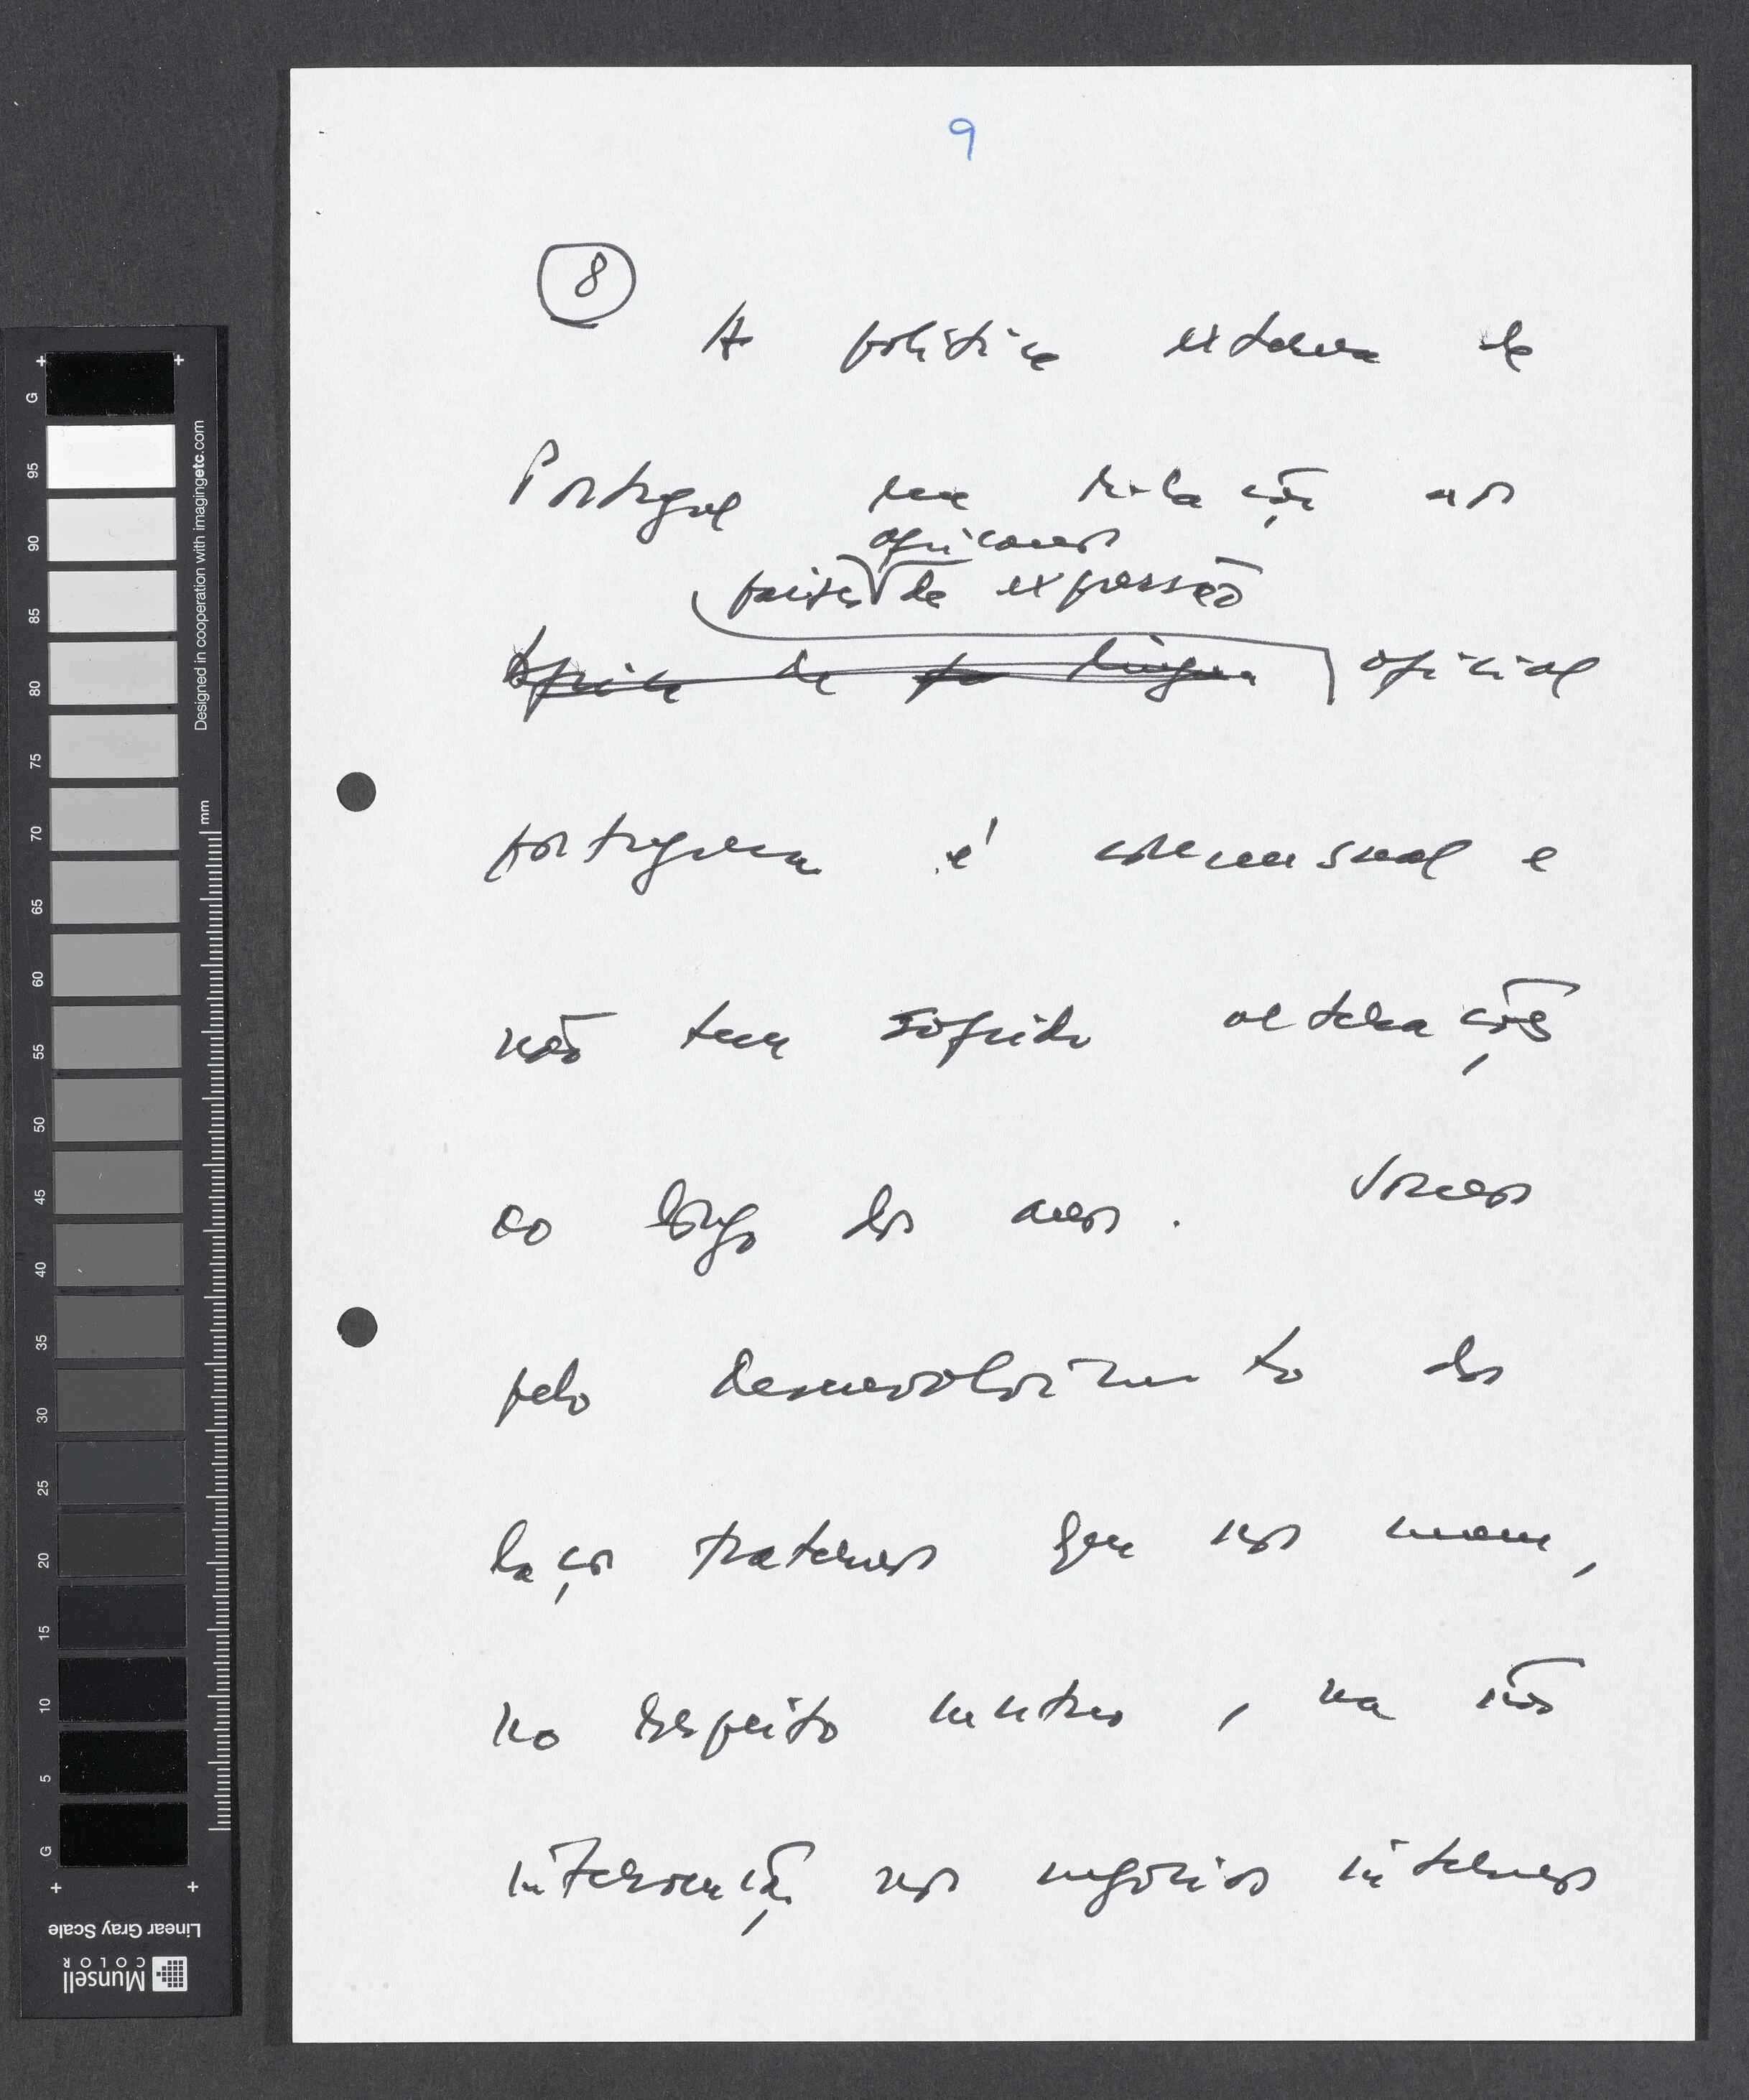 9
8
A política externa de
Portugal em relação aos
africanos
países de expressão
África de língua oficial
portuguesa é consensual e
não tem sofrido alterações
ao longo dos anos. Somos
pelo desenvolvimento dos
laços fraternos que nos unem,
no respeito mútuo, na não
intervenção nos negócios internos
G
95
90
85
80
75
70
65
60
55
50
45
40
35
30
25
20
15
10
5
G
mm
Designed in cooperation with imagingetc.com
Linear Gray Scale
Munsell
COLOR